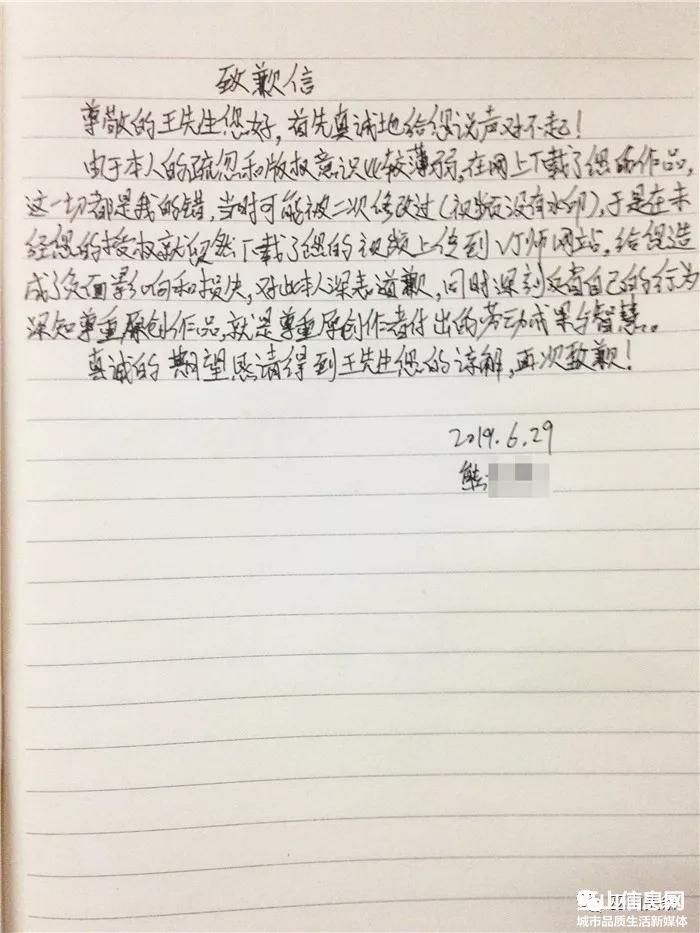 致歉信
尊敬的王先生您好，首先真诚地给您说声对不起！
由于本人的疏忽和版权意识比较薄弱，在网上下载了您的作品，
这一切都是我的错，当时可能被二次修改过（视频没有水印），于是在未
经您的授权就仍然下载了您的视频上传到VJ师网站，给您造
成了负面影响和损失，对此本人深表道歉，同时深刻反省自己的行为
深知尊重原创作品，就是尊重原创作者付出的劳动成果与智慧。
真诚的期望恳请得到王先生您的谅解，再次致歉！
2019.6.29
熊
山信息网
城市品质生活新媒体